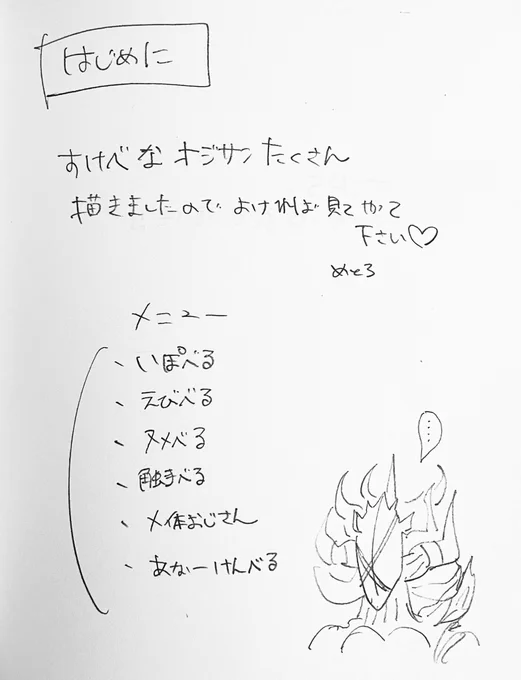 はじめに
すけべなオジサンたくさん
描きましたので よければ見てやって
下さい♡
めとろ
メニュー
、いぽべる
、えびべる
、ヌメべる
、触手べる
、メ体おじさん
、あなーけんべる
……